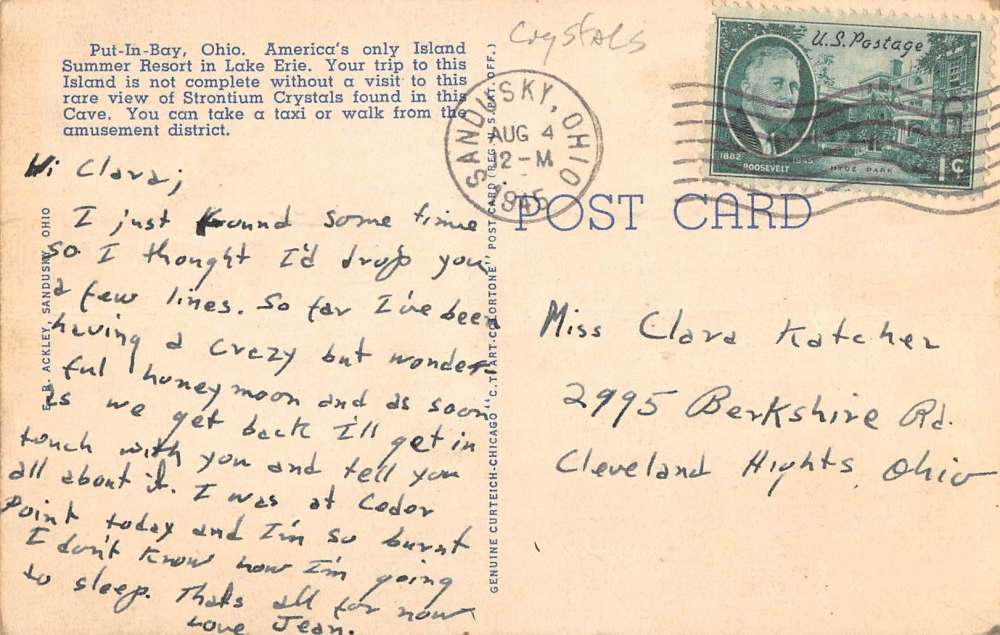 Put-In-Bay, Ohio. America's only Island
Summer Resort in Lake Erie. Your trip to this
Island is not complete without a visit to this
rare view of Strontium Crystals found in this
Cave. You can take a taxi or walk from the
amusement district.
Crystals
SANDUSKY, OHIO
AUG 4
12-M
1945
U.S. Postage
1882
1945
ROOSEVELT
HYDE PARK
1c
POST CARD
Hi Clara;
I just found some time
so I thought I'd drop you
a few lines. So far I've been
having a crezy but wonder-
ful honeymoon and as soon
as we get back I'll get in
touch with you and tell you
all about it. I was at Codor
Point today and I'm so burnt
I don't know how I'm going
to sleep. Thats all for now
Love Jean.
ACKLEY, SANDUSKY, OHIO
GENUINE CURTEICH-CHICAGO "C.T. ART-COLORTONE" POST CARD (REG. U.S. PAT. OFF.)
Miss Clara Katcher
2995 Berkshire Rd.
Cleveland Hights, Ohio